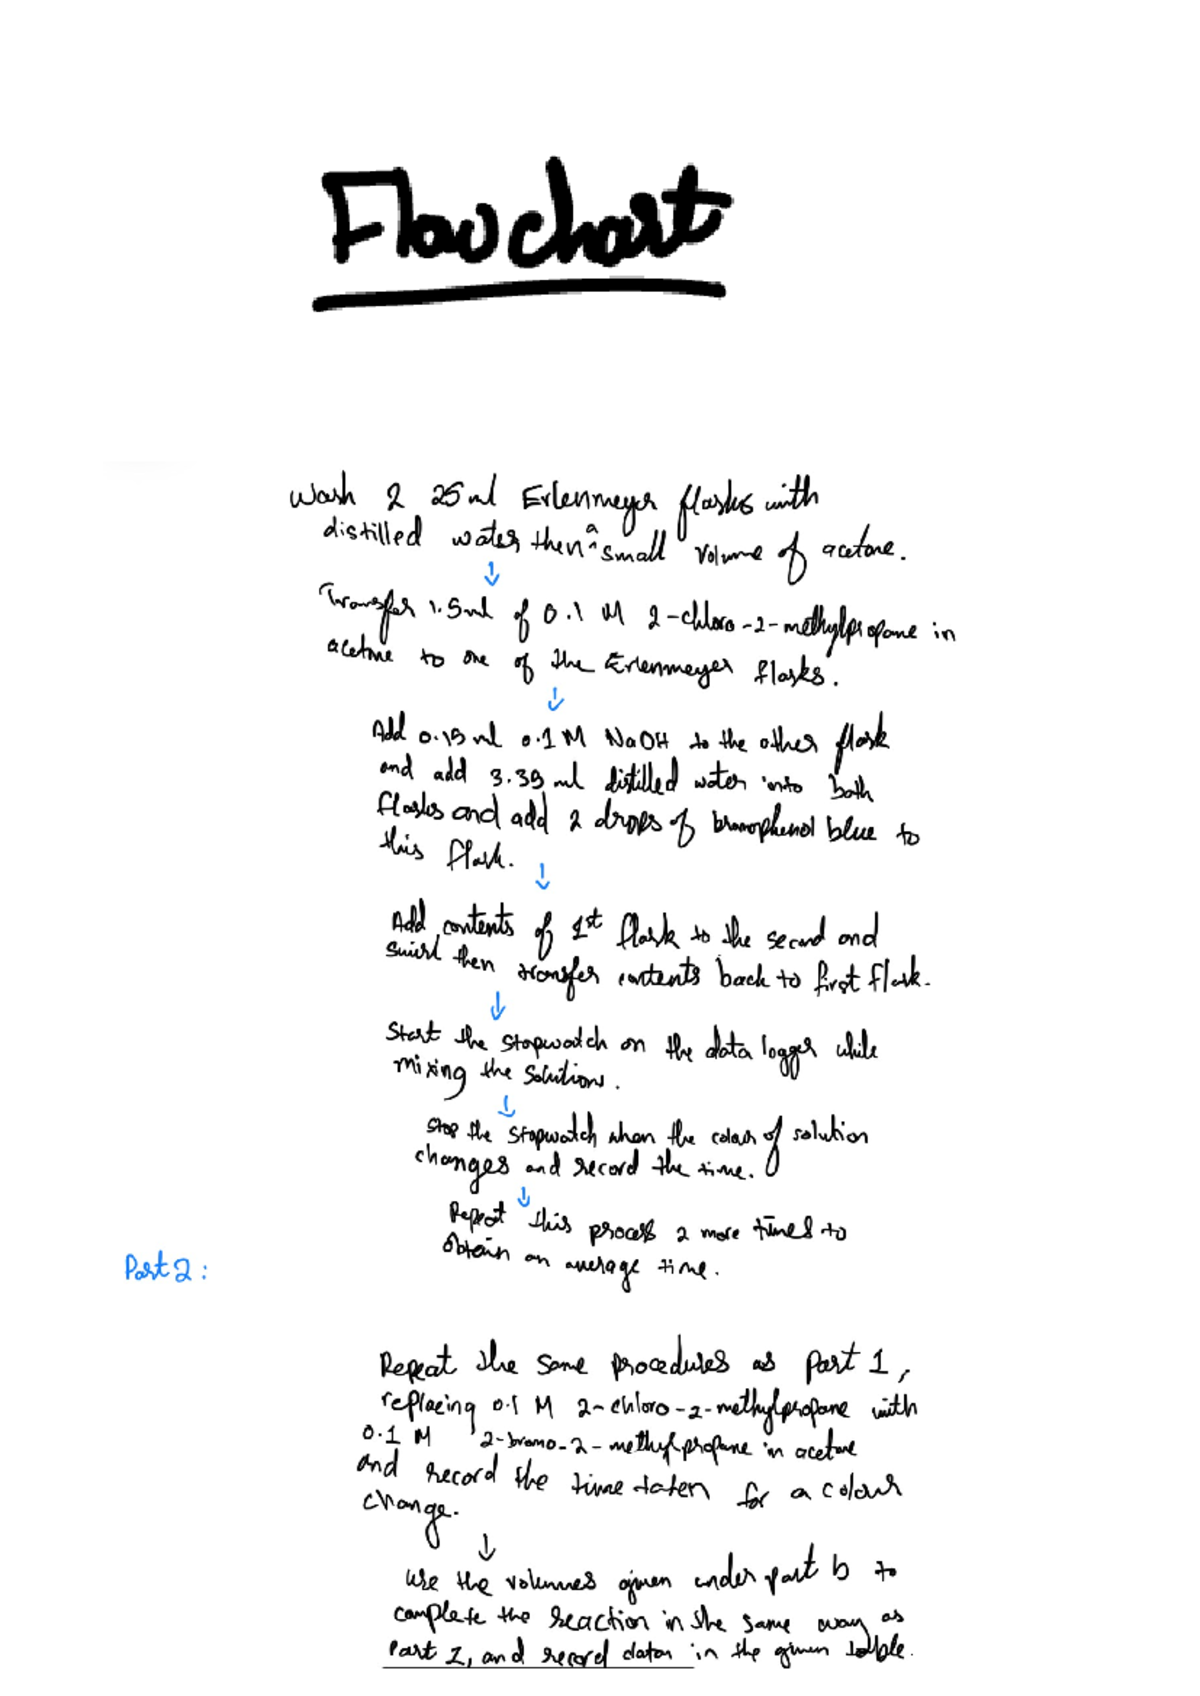 Flowchart
Wash 2 25 ml Erlenmeyer flasks with
distilled water then a small volume of acetone.
↓
Transfer 1.5ml of 0.1 M 2-chloro-2-methylpropane in
acetone to one of the Erlenmeyer flasks.
↓
Add 0.15 ml 0.1M NaOH to the other flask
and add 3.35 ml distilled water into both
flasks and add 2 drops of bromophenol blue to
this flask.
↓
Add contents of 1st flask to the second and
swirl then transfer contents back to first flask.
↓
Start the stopwatch on the data logger while
mixing the solutions.
↓
Stop the stopwatch when the colour of solution
changes and record the time.
↓
Repeat this process 2 more times to
obtain an average time.
Part 2:
Repeat the same procedures as Part 1,
replacing 0.1 M 2-chloro-2-methylpropane with
0.1 M 2-bromo-2-methylpropane in acetone
and record the time taken for a colour
change.
↓
Use the volumes given under part b to
complete the reaction in the same way as
Part 1, and record data in the given table.